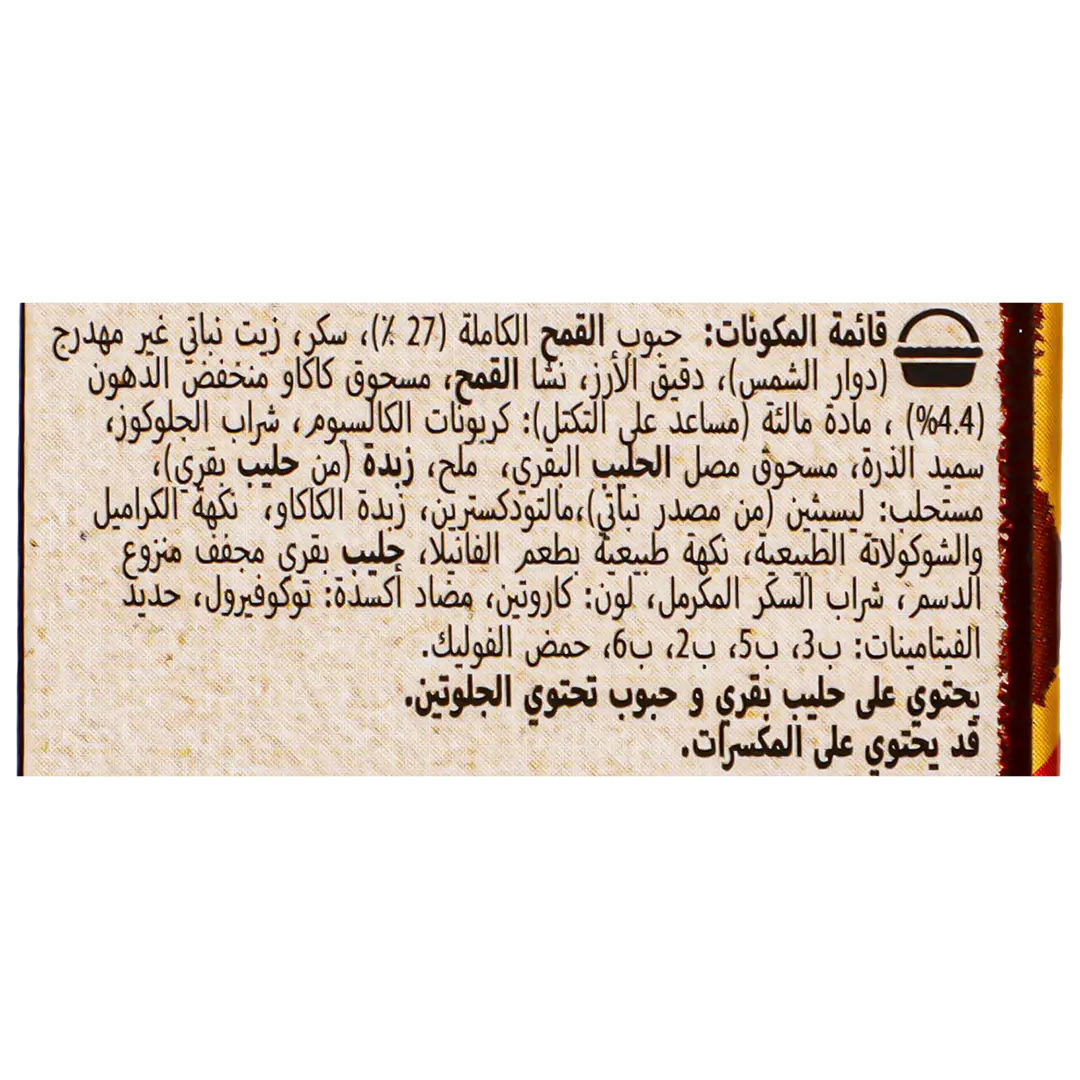 قائمة المكونات: حبوب القمح الكاملة (27 ٪)، سكر، زيت نباتي غير مهدرج
(دوار الشمس)، دقيق الأرز، نشا القمح، مسحوق كاكاو منخفض الدهون
(4.4%) ، مادة مالئة (مساعد على التكتل): كربونات الكالسيوم، شراب الجلوكوز،
سميد الذرة، مسحوق مصل الحليب البقري، ملح، زبدة (من حليب بقري)،
مستحلب: ليسيثين (من مصدر نباتي)،مالتودكسترين، زبدة الكاكاو، نكهة الكراميل
والشوكولاتة الطبيعية، نكهة طبيعية بطعم الفانيلا، حليب بقرى مجفف منزوع
الدسم، شراب السكر المكرمل، لون: كاروتين، مضاد أكسدة: توكوفيرول، حديد
الفيتامينات: ب3، ب5، ب2، ب6، حمض الفوليك.
يحتوي على حليب بقري و حبوب تحتوي الجلوتين.
قد يحتوي على المكسرات.